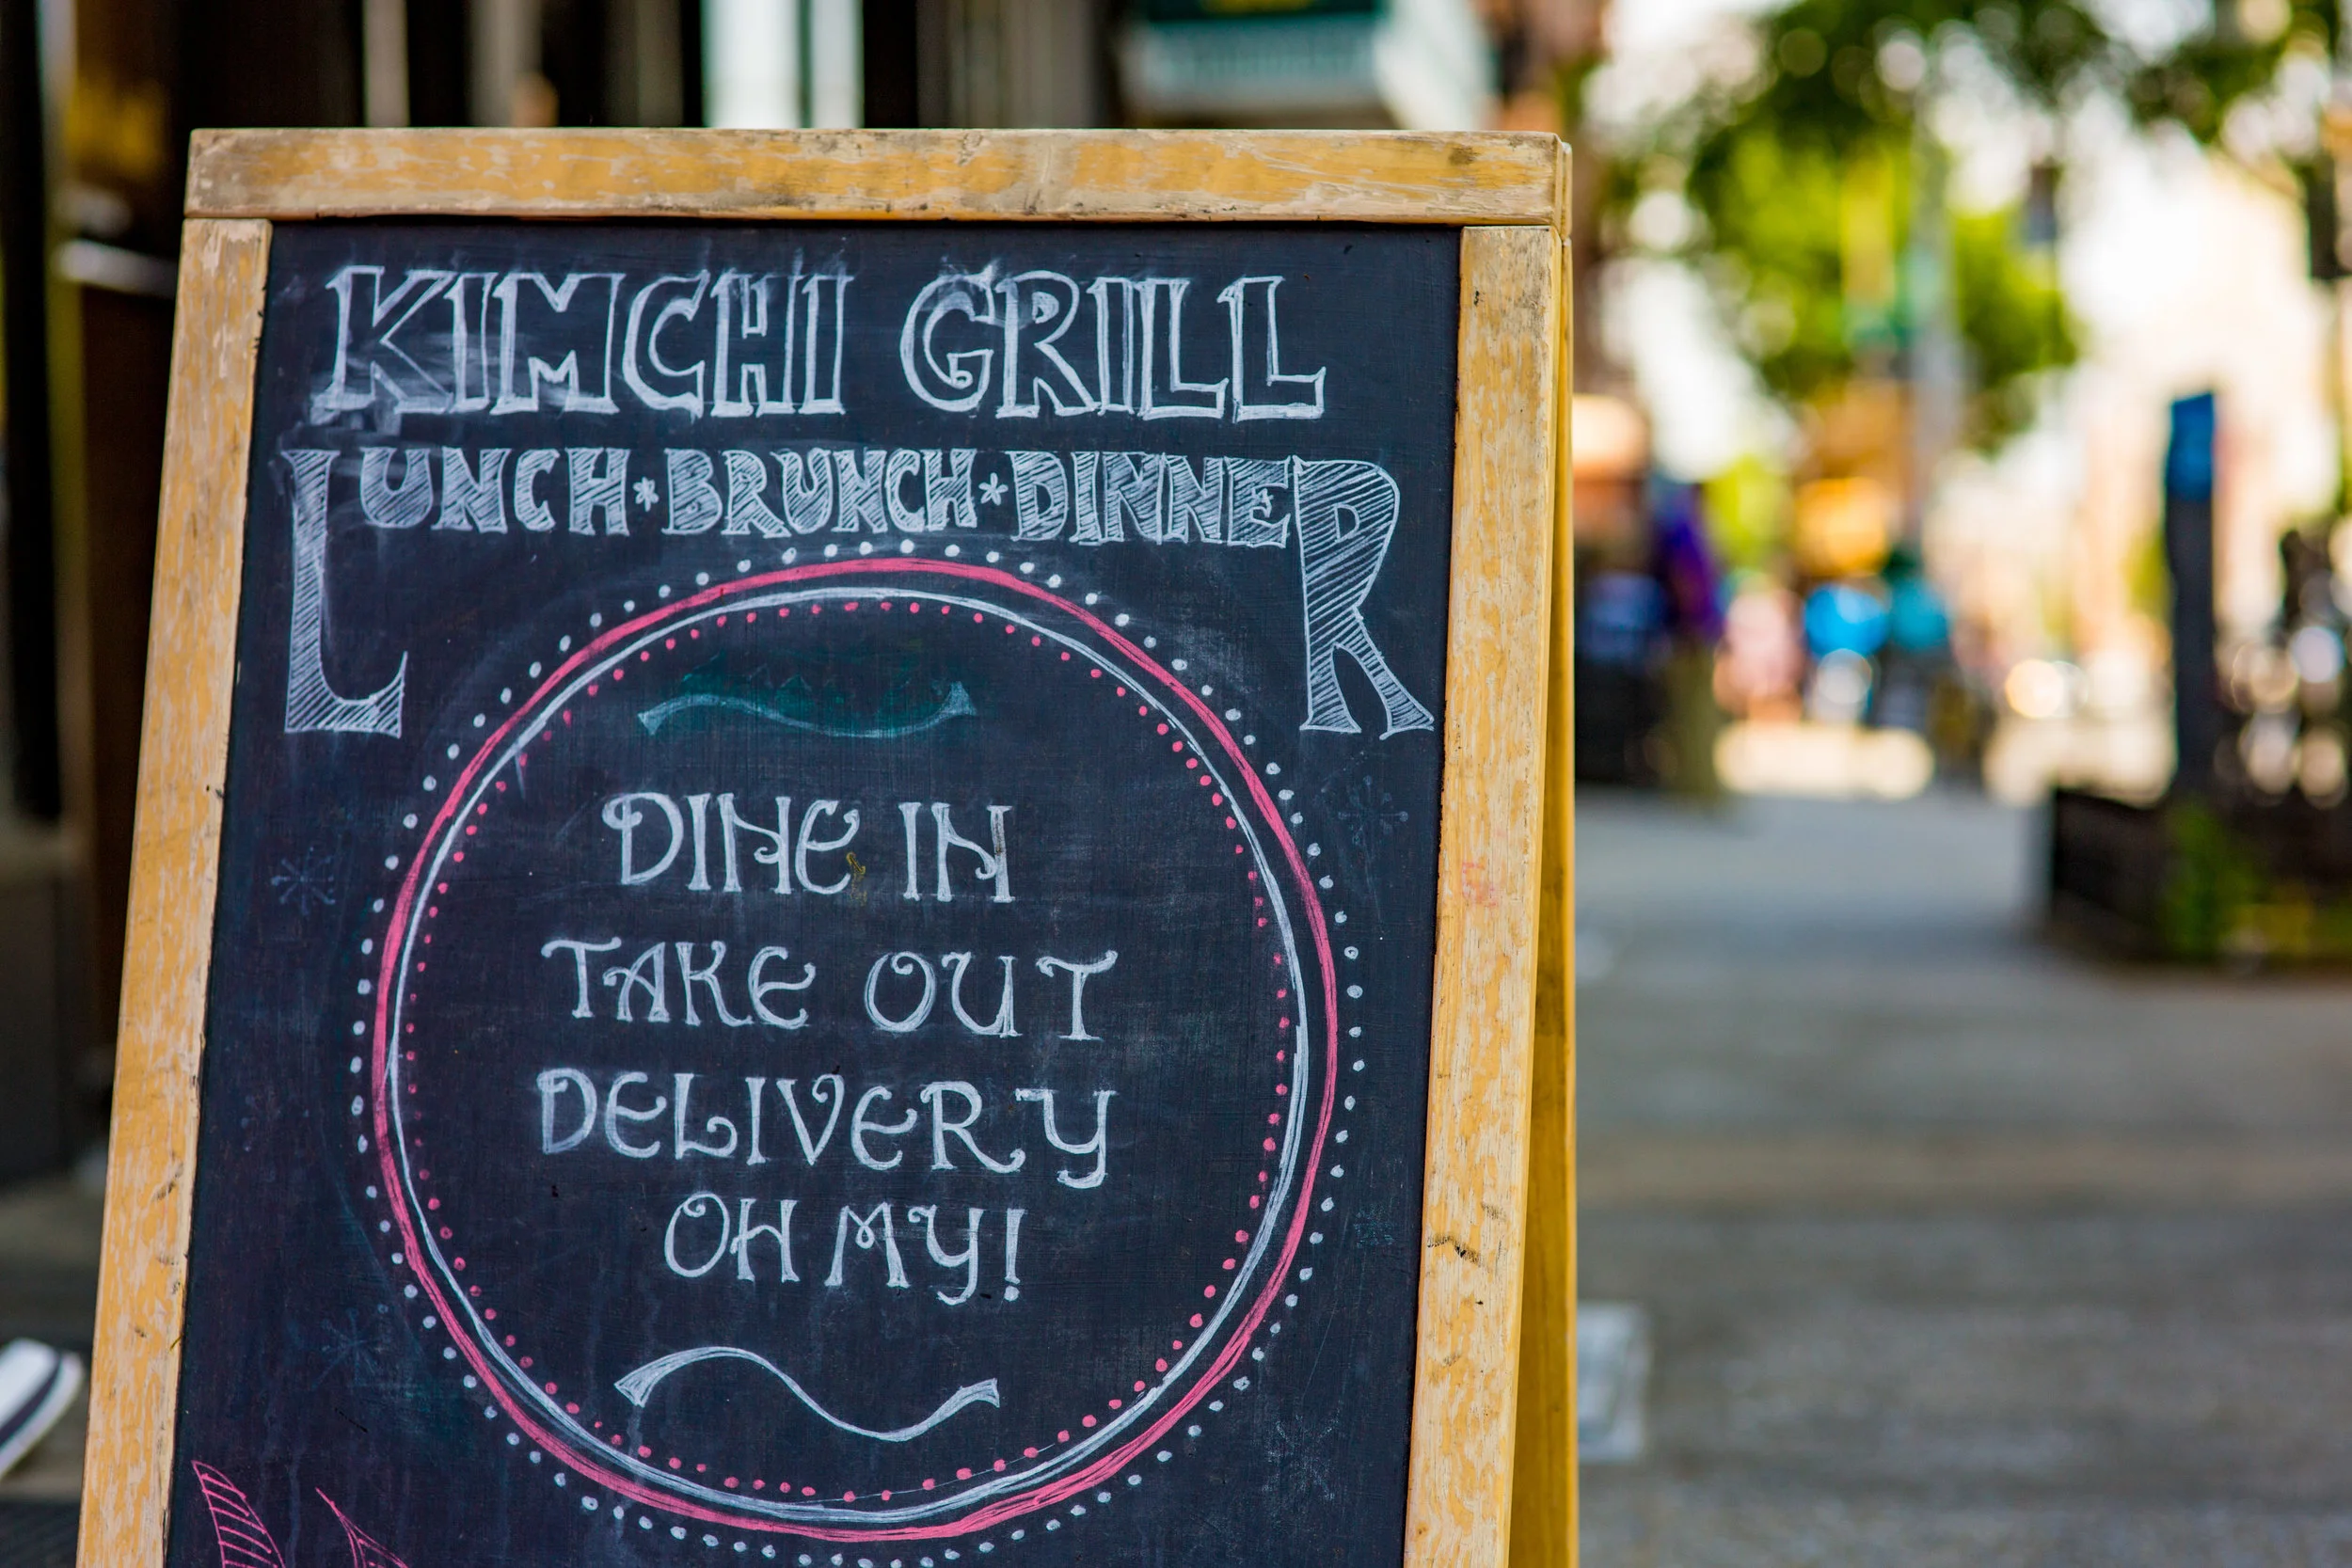 KIMCHI GRILL
LUNCH*BRUNCH*DINNER
DINE IN
TAKE OUT
DELIVERY
OH MY!